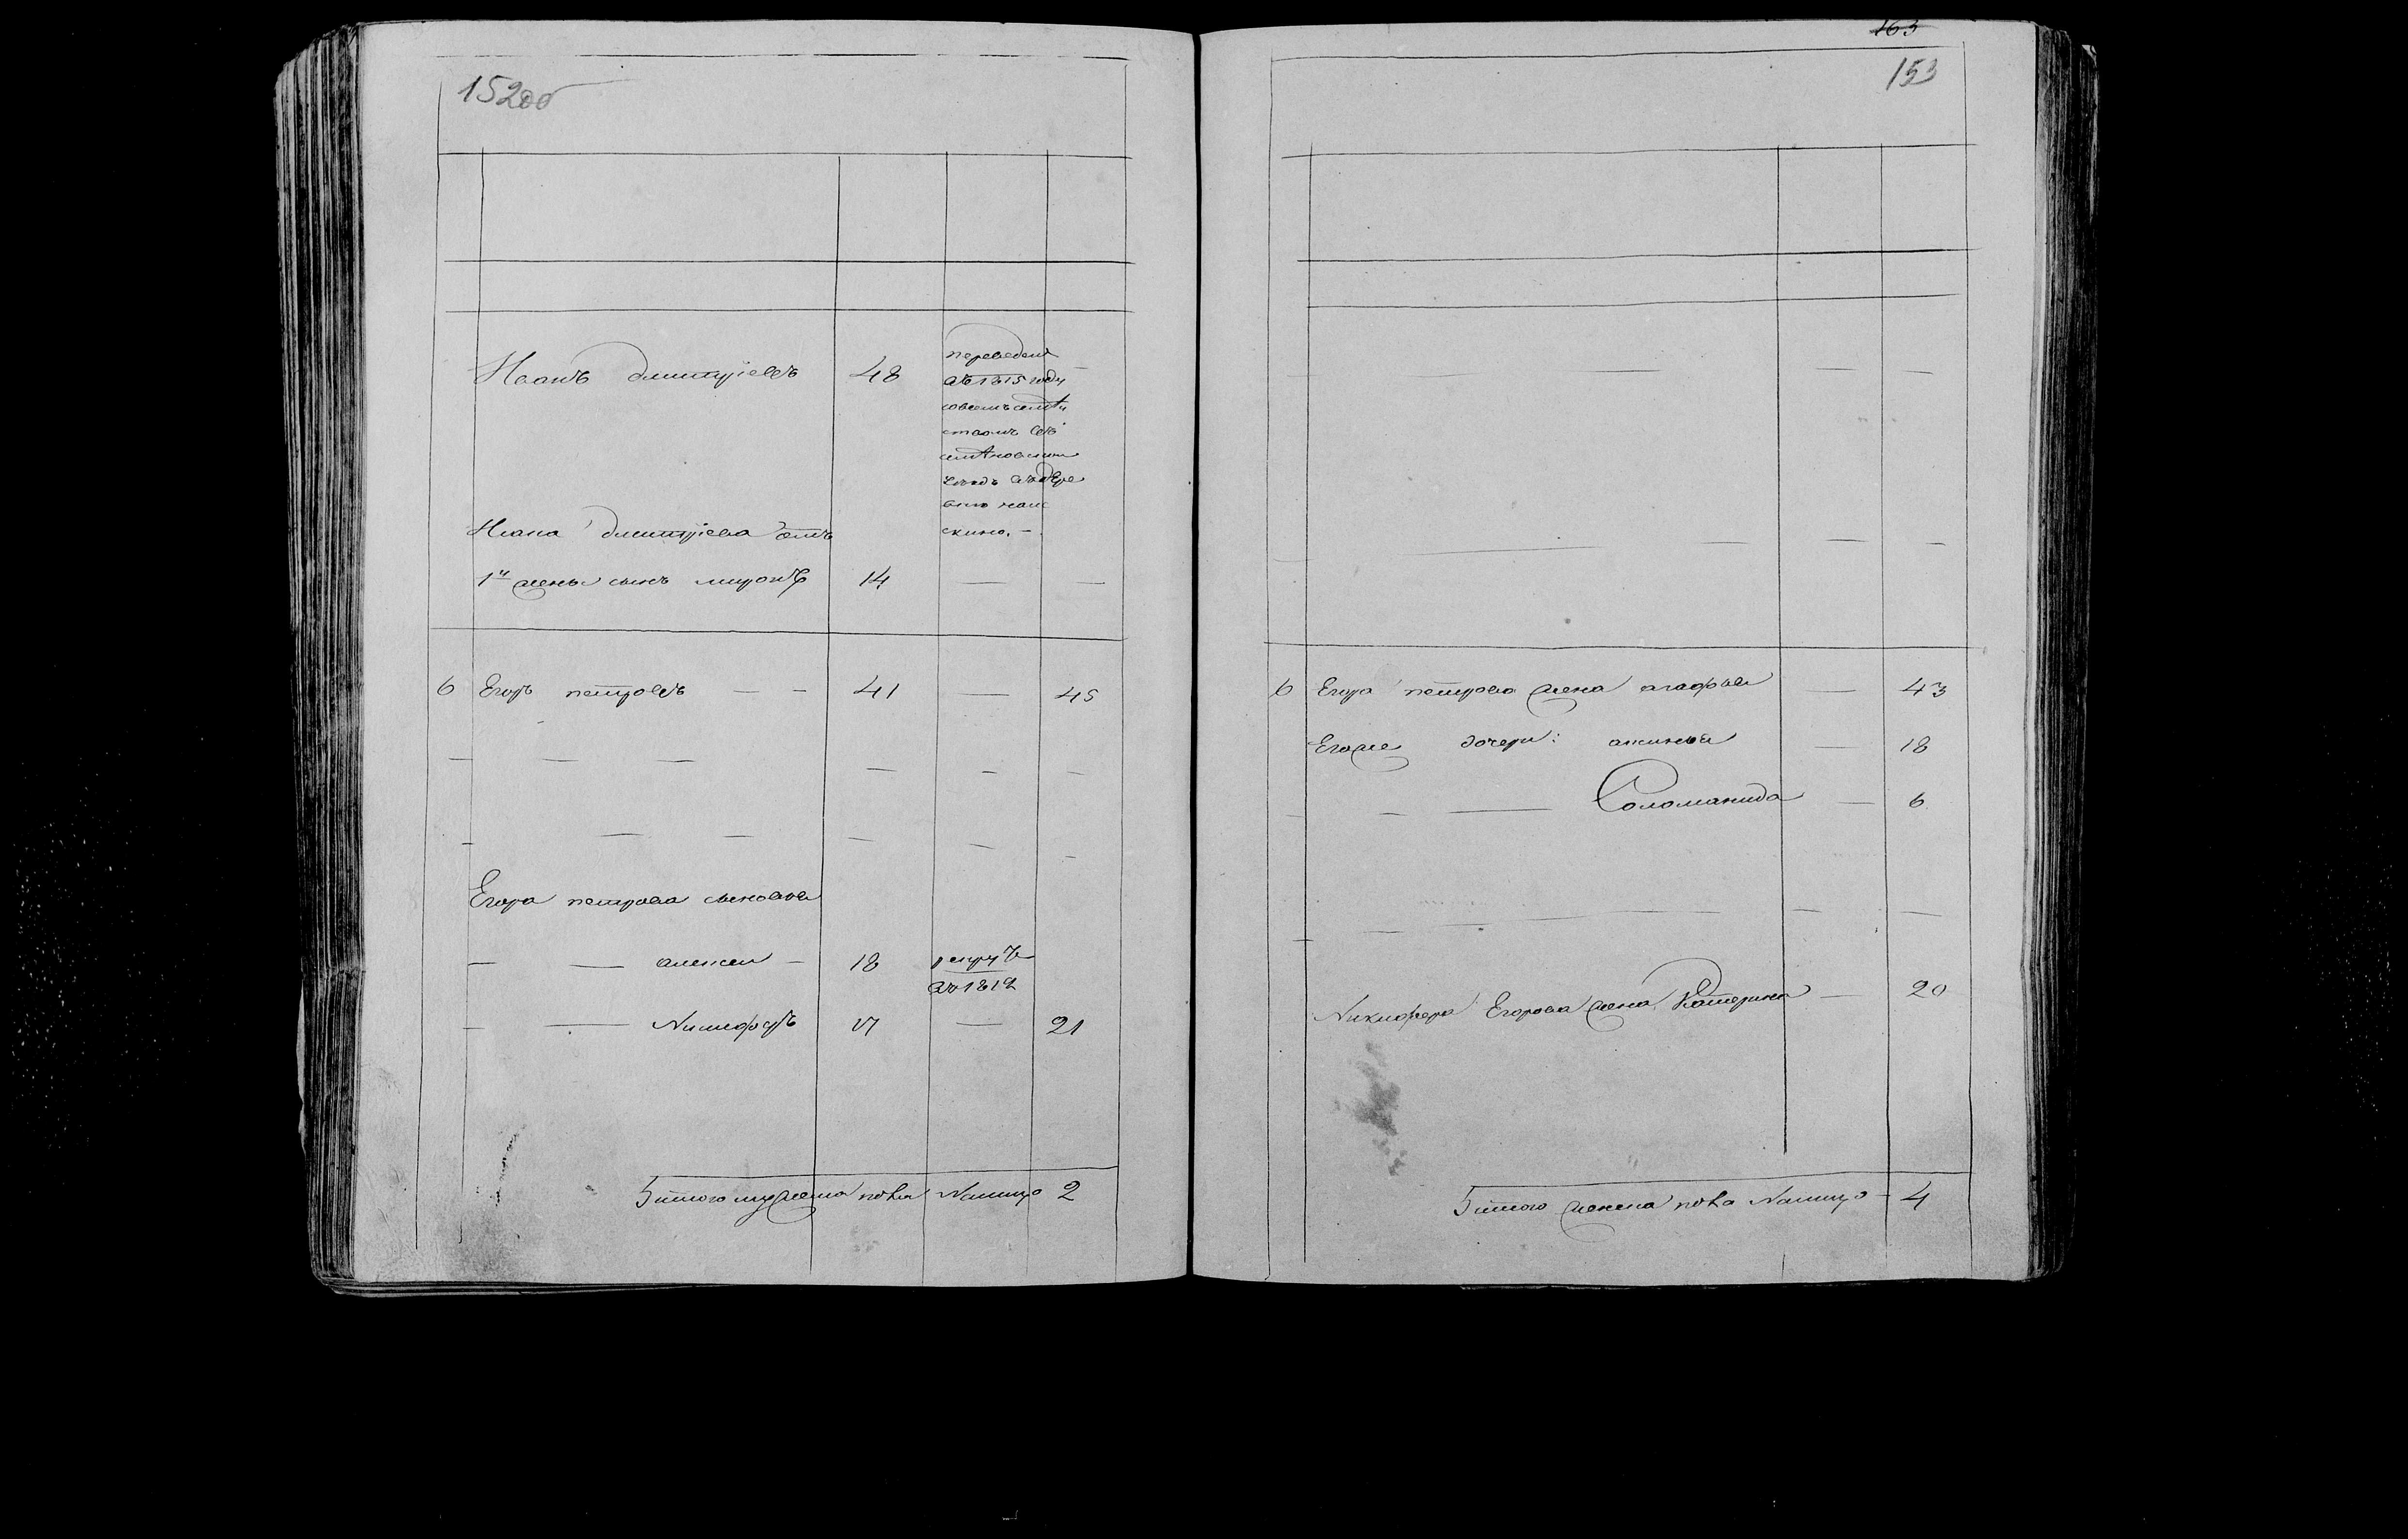 152об
Иванъ дмитріевъ 48
переведенъ
въ 1815 году
совсемъ семѣй
ствомъ
уездъ въ дере
вню
скино.
Ивана дмитріева отъ
1й жены сынъ миронъ 14
6 Егоръ петровъ 41 45
Егора петрова сыновья
алексей 18 рекрутъ
въ 1812
Никифоръ 17 21
итого мужеска пола Налицо 2
163
153
6 Егора петрова жена агафья 43
Егоже дочери: аксинья 18
Соломанида 6
Никифора Егорова жена Катерина 20
итого женска пола Налицо 4